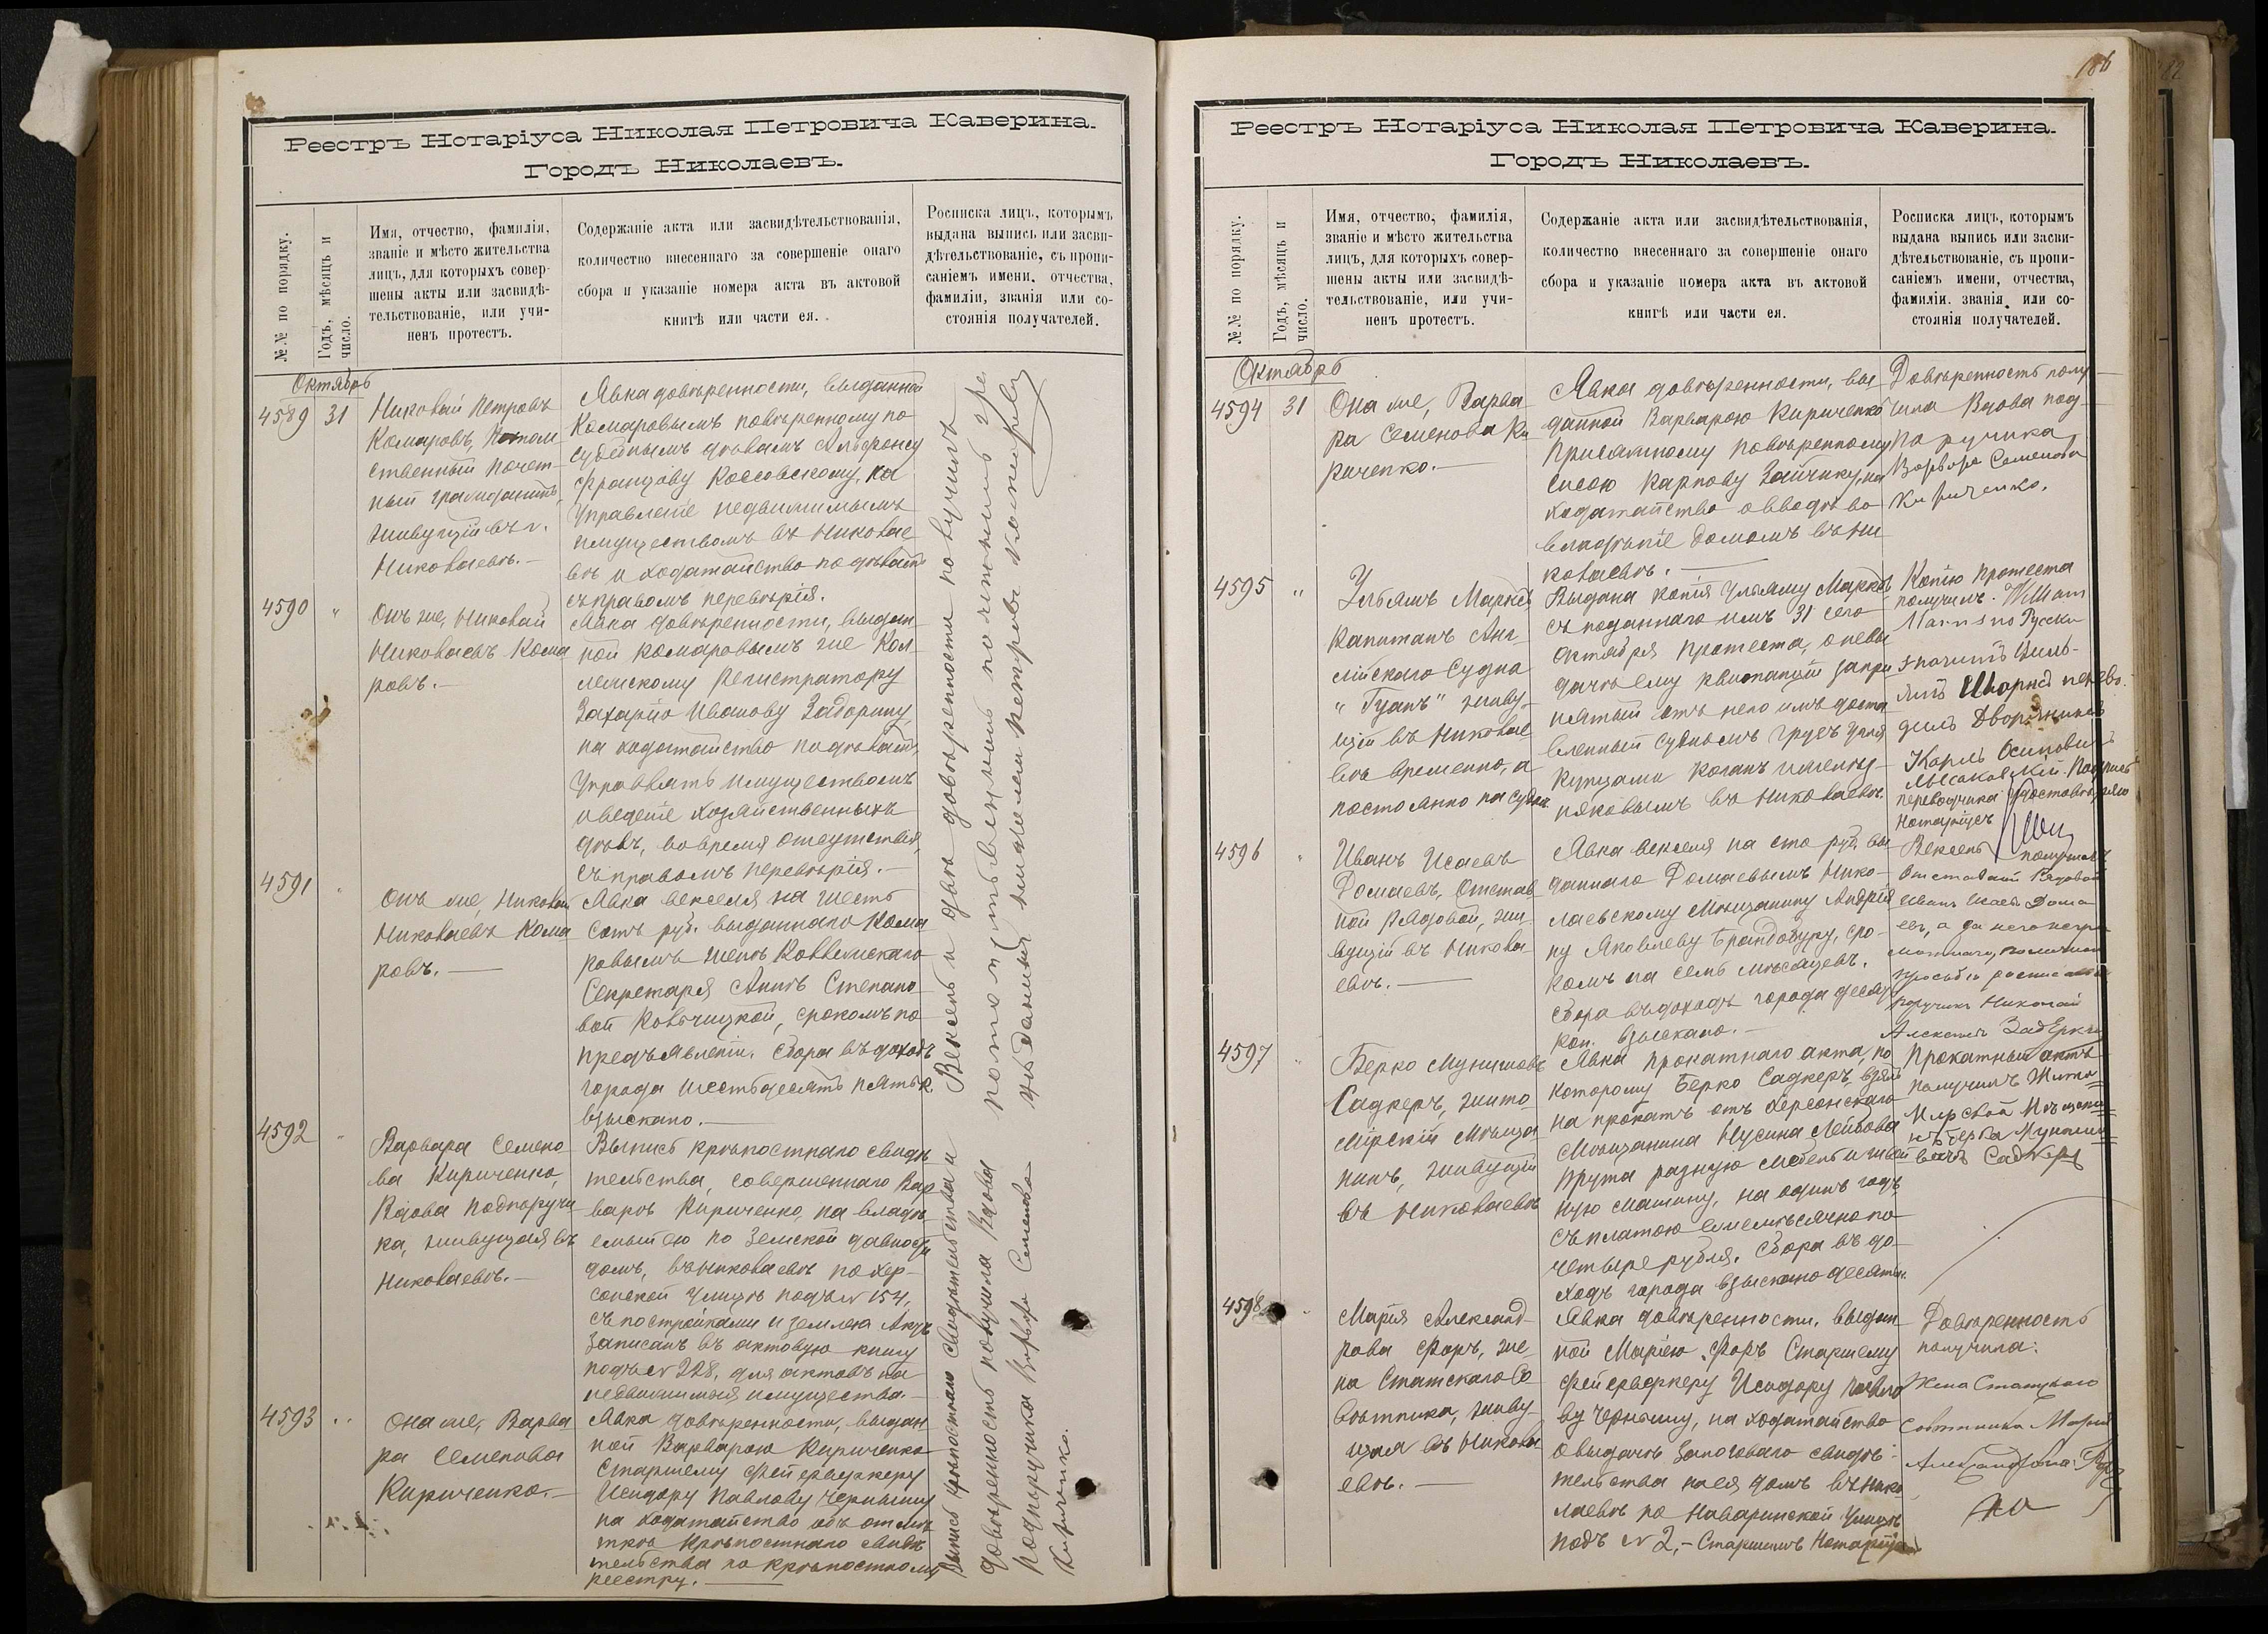 Реестръ Нотаріуса Николая Петровича Каверина.
Городъ Николаевъ.
№№ по порядку.
Годъ, мѣсяцъ и
число.
Имя, отчество, фамилія,
званіе и мѣсто жительства
лицъ, для которыхъ совер-
шены акты или засвидѣ-
тельствованіе, или учи-
ненъ протестъ.
Содержаніе акта или засвидѣтельствованія,
количество внесеннаго за совершеніе онаго
сбора и указаніе номера акта въ актовой
книгѣ или части ея.
Росписка лицъ, которымъ
выдана выпись или засви-
дѣтельствованіе, съ пропи-
саніемъ имени, отчества,
фамиліи, званія или со-
стоянія получателей.
Октябрь
4589 31
Николай Петровъ
Комаровъ, Потом
ственный почет-
ный гражданинъ,
живущій въ г.
Николаевѣ.—
Явка довѣренности, выданной
Комаровымъ повѣренному по
судебнымъ дѣламъ Альфонсу
Францову Коссовскому, на
управленіе недвижимымъ
имуществомъ въ Николае
вѣ и ходатайство по дѣламъ
съ правомъ перевѣрія.
4590 "
Онъ же, Николай
Николаевъ Кома
ровъ.—
Явка довѣренности, выдан-
ной Комаровымъ же Кол-
лежскому Регистратору
Захарію Иванову Задорину,
на ходатайство по дѣламъ,
управлять имуществомъ
и веденіе хозяйственныхъ
дѣлъ, во время отсутствія,
съ правомъ перевѣрія.—
4591 "
Онъ же, Николай
Николаевъ Кома
ровъ.—
Явка векселя на шесть
сотъ руб. выданнаго Кома
ровымъ женѣ Коллежскаго
Секретаря Аннѣ Степано
вой Ковычицкой, срокомъ по
предъявленіи. Сбора въ доходъ
города шестьдесятъ пять к.
взыскано.—
4592 "
Варвара Семено
ва Кириченко,
Вдова Подпоручи
ка, живущая въ
Николаевѣ.—
Выпись крѣпостнаго свидѣ
тельства, совершеннаго Вар
варѣ Кириченко, на владѣ
емый ею по земской давности
домъ, въ Николаевѣ по Хер-
сонской улицѣ подъ № 154,
съ постройками и землею Актъ
записанъ въ актовую книгу
подъ № 228, для актовъ на
недвижимыя имущества.—
4593 "
Она же, Варва
ра Семенова
Кириченко.—
Явка довѣренности, выдан
ной Варварою Кириченко
Старшему Фейерверкеру
Исидору Павлову Чернышу
на ходатайство объ отмѣ
ткѣ Крѣпостнаго свидѣ
тельства по крѣпостному
реестру.—
Вексель и двѣ довѣренности получилъ
потомственный почетный гра
жданинъ Николай Петровъ Комаровъ
Выпись крѣпостнаго свидѣтельства и
довѣренность получила Вдова
подпоручика Варвара Семенова
Кириченко.
186
Реестръ Нотаріуса Николая Петровича Каверина.
Городъ Николаевъ.
№№ по порядку.
Годъ, мѣсяцъ и
число.
Имя, отчество, фамилія,
званіе и мѣсто жительства
лицъ, для которыхъ совер-
шены акты или засвидѣ-
тельствованіе, или учи-
ненъ протестъ.
Содержаніе акта или засвидѣтельствованія,
количество внесеннаго за совершеніе онаго
сбора и указаніе номера акта въ актовой
книгѣ или части ея.
Росписка лицъ, которымъ
выдана выпись или засви-
дѣтельствованіе, съ пропи-
саніемъ имени, отчества,
фамиліи. званія или со-
стоянія получателей.
Октябрь
4594 31
Она же, Варва
ра Семенова Ки
риченко.—
Явка довѣренности, вы
данной Варварою Кириченко
Присяжному повѣренному
Карпову Зайчику, на
ходатайство о вводѣ во
владѣніе домомъ въ Ни
колаевѣ.—
Довѣренность полу
чила Вдова под
поручика
Варвара Семенова
Кириченко.
4595 "
Ульямъ Марксъ
Капитанъ Анг
лійскаго Судна
"Гуанъ" живу-
щій въ Николае
вѣ временно, а
постоянно на суднѣ
Выдана копія Ульяму Марксъ,
съ поданнаго имъ 31 сего
Октября Протеста, о невы
дачѣ ему квитанціи
отъ него имъ доста
вленный суднымъ грузъ
купцами Коганъ
въ Николаевѣ.
Копію Протеста
получилъ. William
по Русски
значитъ Виль-
ямъ перево
дилъ Дворянинъ
Карлъ Осиповичъ
Подпись
переводчика удостовѣряю
Нотаріусъ
4596 "
Иванъ Исаевъ
Домаевъ, Отстав
ной Рядовой, жи
вущій въ Никола
евѣ.—
Явка векселя на сто руб. вы
даннаго Домаевымъ Нико-
лаевскому Мѣщанину Андрію
ну Яковлеву Брандобуру, сро-
комъ на семь мѣсяцевъ.
Сбора въ доходъ города десять
коп. взыскано.—
Вексель получилъ
Отставной Рядовой
Иванъ Исаевъ Дома
евъ, а за него негра
мотнаго, по личной
просьбѣ росписался
поручикъ Николай
4597 "
Берко Мунишовъ
Садкеръ, жито-
мірскій Мѣща
нинъ, живущій
въ Николаевѣ
Явка прокатнаго акта, по
которому Берко Садкеръ взялъ
на прокатъ отъ Херсонскаго
Мѣщанина Нусина Лейбова
Прута разную мебель и швей
ную машину, на одинъ годъ,
съ платою ежемѣсячно по
четыре рубля. Сбора въ до-
ходъ города взыскано десять к.
Прокатный актъ
получилъ Жито=
мирскій Мѣщани
нъ Берка Мунишо
вичъ Садкеръ
4598 "
Марія Александ
рова Форъ, же
на Статскаго Со
вѣтника, живу-
щая въ Никола
евѣ.—
Явка довѣренности, выдан
ной Маріею Форъ Старшему
Фейерверкеру Исидору Павло
ву Чернышу, на ходатайство
о выдачѣ залоговаго свидѣ-
тельства на ея домъ въ Нико
лаевѣ по Наваринской улицѣ
подъ № 2,— Старшимъ Нотаріусомъ
Довѣренность
получила:
Жена Статскаго
Совѣтника Марія
Александрова Форъ